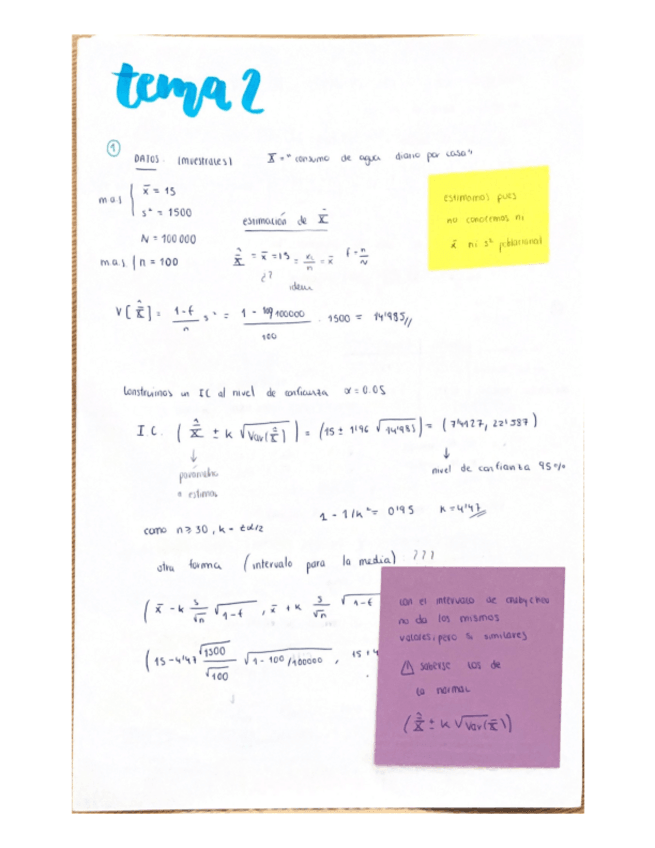 tema 2
①
DATOS (muestrales) X̄ = "consumo de agua diario por casa"
m.a.s { x̄ = 15
s² = 1500
N = 100 000
m.a.s. | n = 100
estimación de X̄
X̄̂ = x̄ = 15 = = x̄ f = n/N
¿?
idem
estimamos pues
no conocemos ni
x̄ ni s² poblacional
V[X̄̂] = 1-f/n s² = 1 - 100/100000 / 100 · 1500 = 14'985//
Construimos un IC al nivel de confianza α = 0.05
I.C. (X̄̂ ± k √Var(X̄̂)) = (15 ± 1'96 √14'985) = (7'4127, 22'587)
↓ ↓
parámetro nivel de confianza 95%
a estimar
1 - 1/k² = 0'95 k = 4'47
como n ≥ 30, k =
otra forma (intervalo para la media) ???
(x̄ - k s/√n √1-f , x̄ + k s/√n √1-f
(15 - 4'47 √1500/√100 √1 - 100/100000 , 15 + 4
con el intervalo de
no da los mismos
valores, pero si similares
⚠ saberse los de
la normal
(X̄̂ ± k √Var(X̄̂))